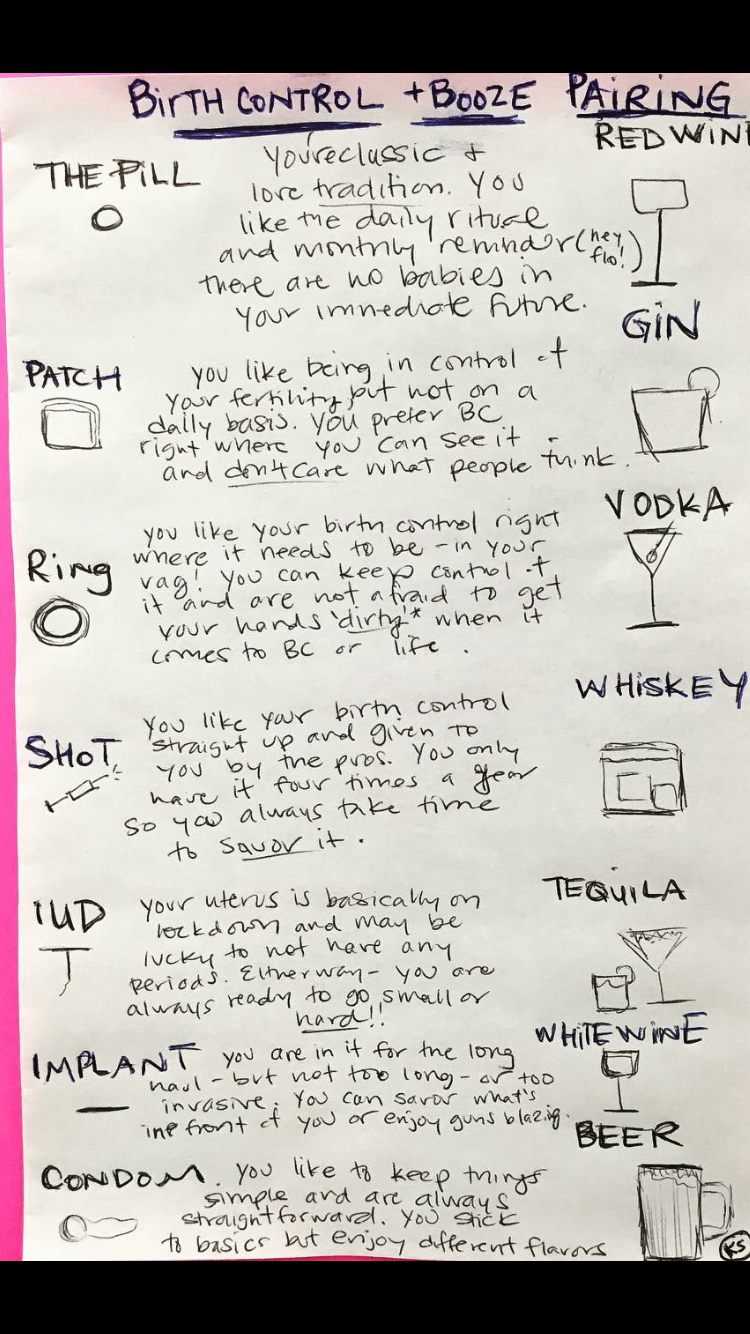 BiRTH CONTROL + BOOZE PAiRiNG
THE PiLL
You're classic +
love tradition. You
like the daily ritual
and monthly reminder (hey,
flo!)
there are no babies in
your immediate future.
RED WINE
PATCH
you like being in control of
your fertility but not on a
daily basis. You prefer BC
right where you can see it -
and don't care what people think.
GiN
Ring
you like your birth control right
where it needs to be - in your
vag! you can keep control of
it and are not afraid to get
your hands 'dirty'* when it
comes to BC or life.
VODKA
SHOT
You like your birth control
straight up and given to
you by the pros. You only
have it four times a year
so you always take time
to savor it.
WHiSKEY
IUD
your uterus is basically on
lockdown and may be
lucky to not have any
periods. Either way - you are
always ready to go small or
hard!!
TEQUiLA
IMPLANT
you are in it for the long
haul - but not too long - or too
invasive. You can savor what's
in front of you or enjoy guns blazing.
WHiTE WiNE
CONDOM.
you like to keep things
simple and are always
straightforward. You stick
to basics but enjoy different flavors
BEER
KS